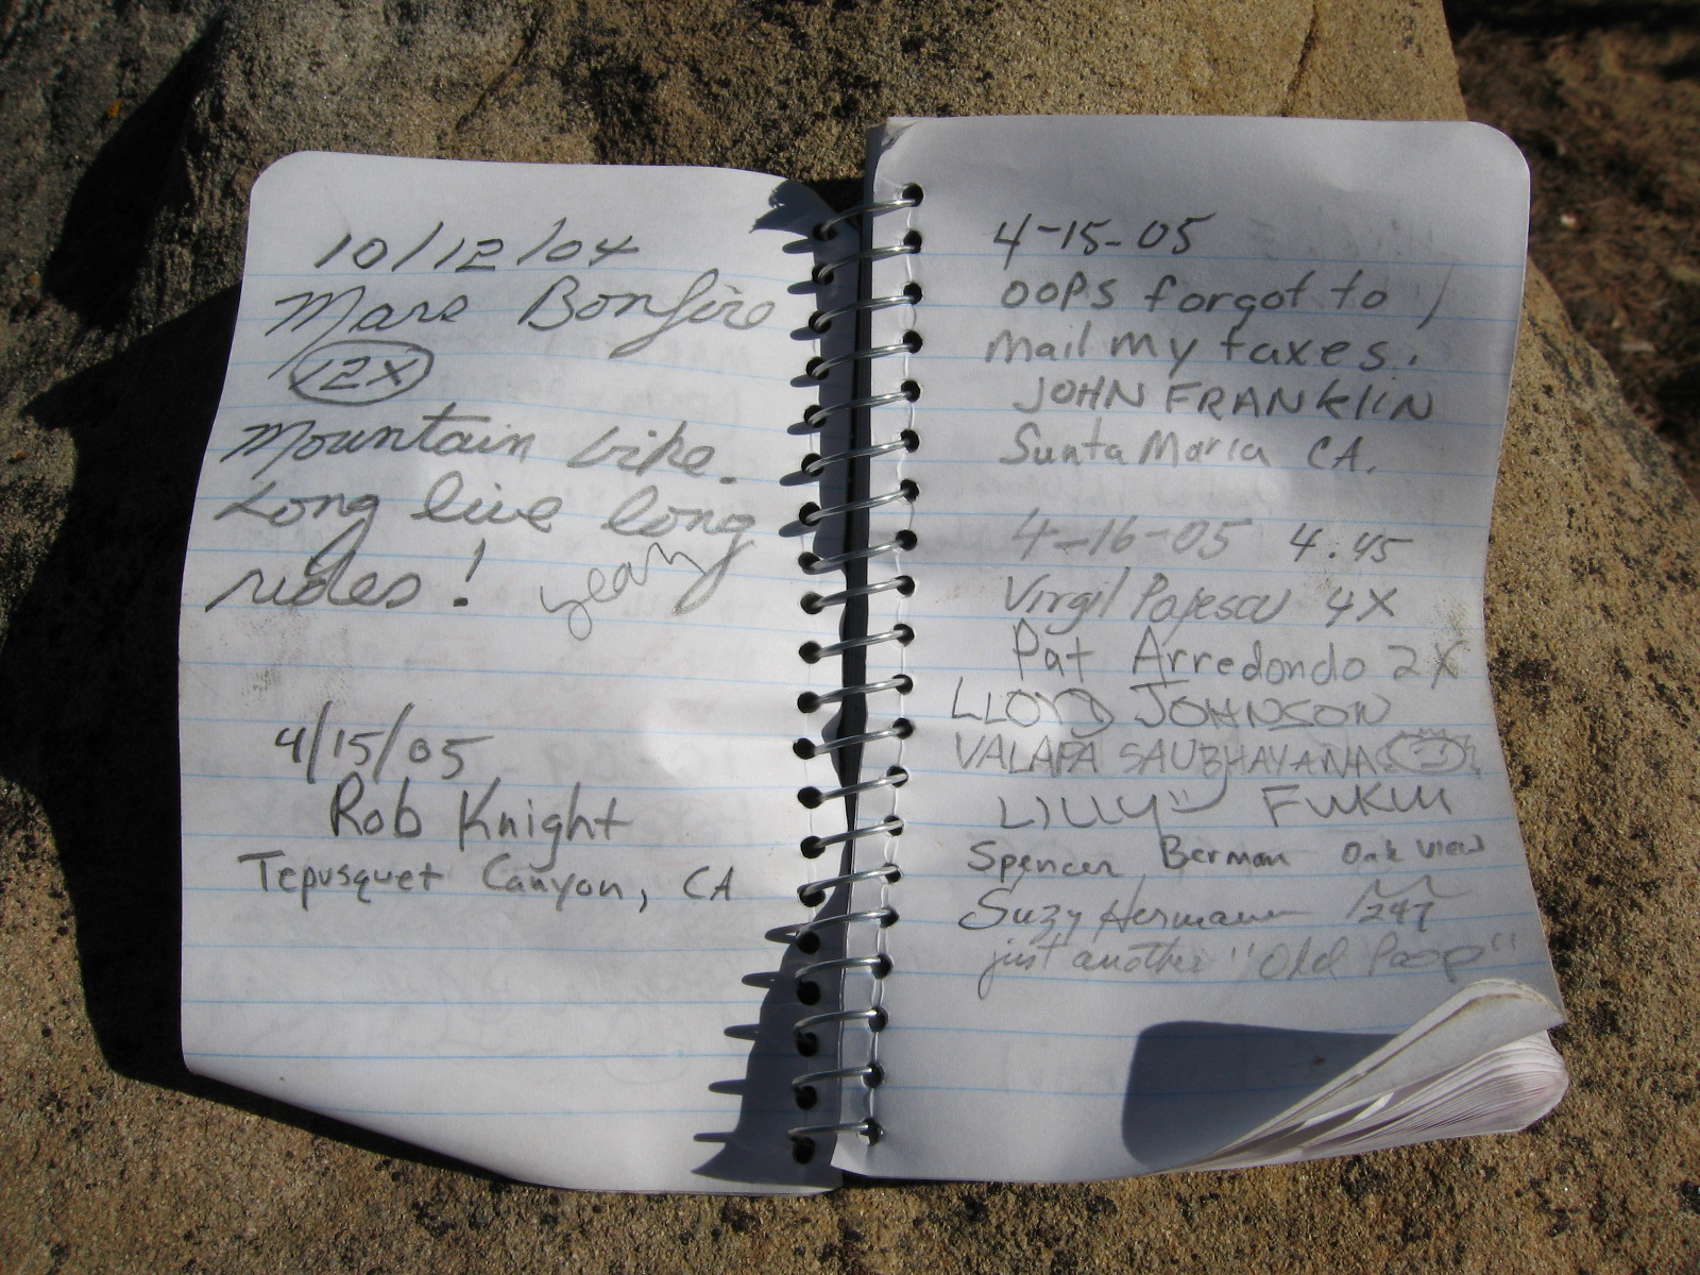 10/12/04
Marc Bonfire
12X
Mountain bike.
Long live long
rides!
yeah
4/15/05
Rob Knight
Tepusquet Canyon, CA
4-15-05
oops forgot to
mail my taxes.
JOHN FRANKlIN
Santa Maria CA.
4-16-05 4.45
Virgil Popescu 4X
Pat Arredondo 2X
LLOYD JOHNSON
VALAPA SAUBHAYANA
LILLY FUKUI
Spencer Berman Oak view
Suzy Hermann
just another "Old Poop"